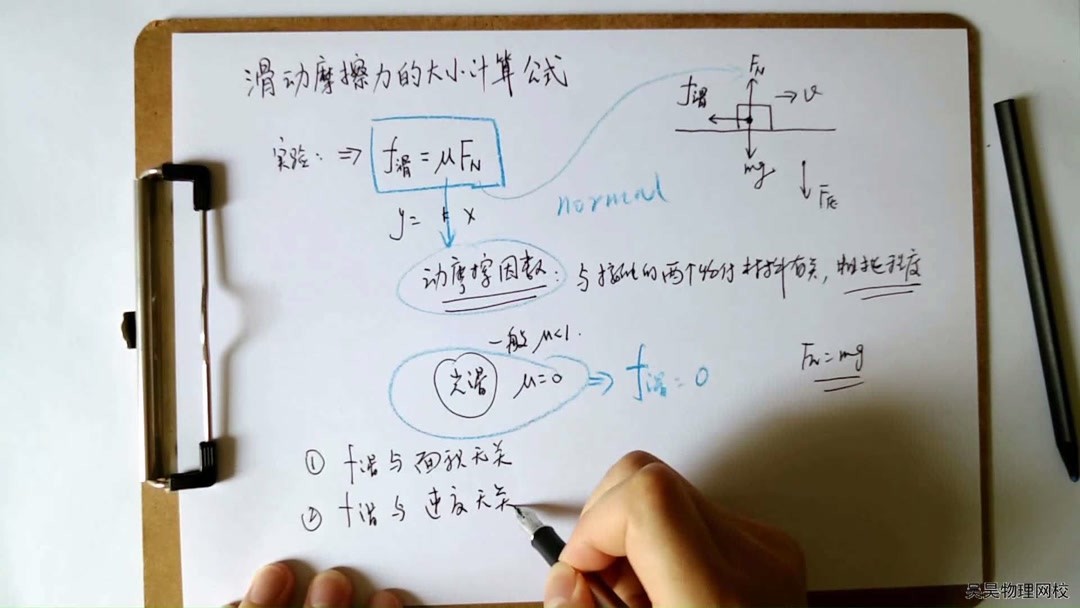 滑动摩擦力的大小计算公式
F_N
f滑
→ v
mg
F压
实验: ⇒ f滑 = μF_N
normal
y = k x
动摩擦因数: 与接触的两个物体材料有关, 粗糙程度
一般 μ<1.
光滑 μ=0 ⇒ f滑 = 0
F_N = mg
① f滑与面积无关
② f滑与速度无关
吴昊物理网校